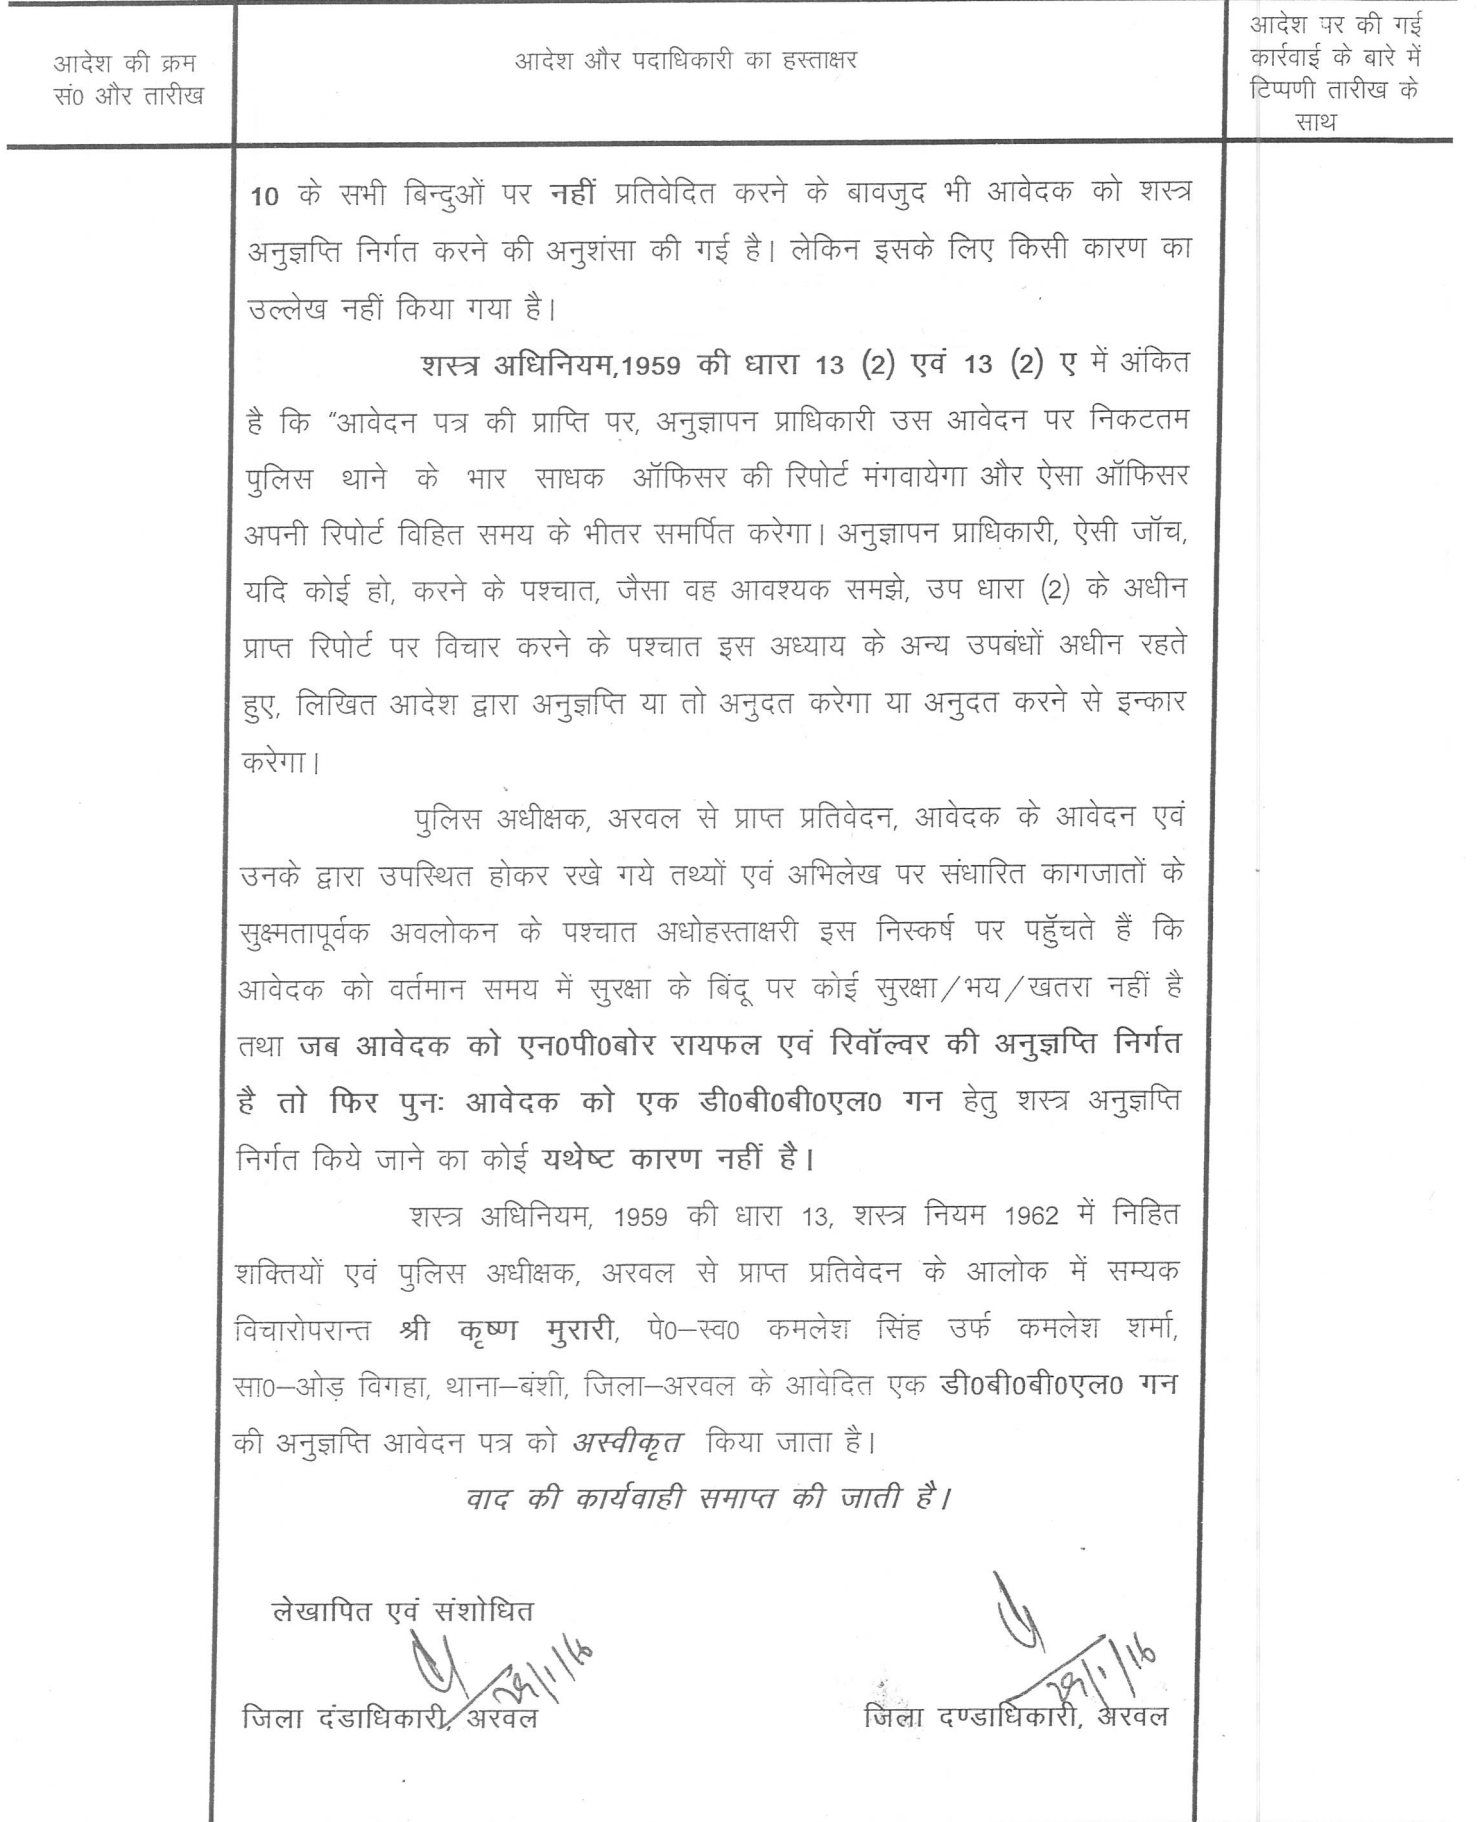 आदेश की क्रम
सं0 और तारीख
आदेश और पदाधिकारी का हस्ताक्षर
आदेश पर की गई
कार्रवाई के बारे में
टिप्पणी तारीख के
साथ
10 के सभी बिन्दुओं पर नहीं प्रतिवेदित करने के बावजुद भी आवेदक को शस्त्र
अनुज्ञप्ति निर्गत करने की अनुशंसा की गई है। लेकिन इसके लिए किसी कारण का
उल्लेख नहीं किया गया है।
शस्त्र अधिनियम,1959 की धारा 13 (2) एवं 13 (2) ए में अंकित
है कि "आवेदन पत्र की प्राप्ति पर, अनुज्ञापन प्राधिकारी उस आवेदन पर निकटतम
पुलिस थाने के भार साधक ऑफिसर की रिपोर्ट मंगवायेगा और ऐसा ऑफिसर
अपनी रिपोर्ट विहित समय के भीतर समर्पित करेगा। अनुज्ञापन प्राधिकारी, ऐसी जॉच,
यदि कोई हो, करने के पश्चात, जैसा वह आवश्यक समझे, उप धारा (2) के अधीन
प्राप्त रिपोर्ट पर विचार करने के पश्चात इस अध्याय के अन्य उपबंधों अधीन रहते
हुए, लिखित आदेश द्वारा अनुज्ञप्ति या तो अनुदत करेगा या अनुदत करने से इन्कार
करेगा।
पुलिस अधीक्षक, अरवल से प्राप्त प्रतिवेदन, आवेदक के आवेदन एवं
उनके द्वारा उपस्थित होकर रखे गये तथ्यों एवं अभिलेख पर संधारित कागजातों के
सुक्ष्मतापूर्वक अवलोकन के पश्चात अधोहस्ताक्षरी इस निस्कर्ष पर पहुॅचते हैं कि
आवेदक को वर्तमान समय में सुरक्षा के बिंदू पर कोई सुरक्षा/भय/खतरा नहीं है
तथा जब आवेदक को एन0पी0बोर रायफल एवं रिवॉल्वर की अनुज्ञप्ति निर्गत
है तो फिर पुनः आवेदक को एक डी0बी0बी0एल0 गन हेतु शस्त्र अनुज्ञप्ति
निर्गत किये जाने का कोई यथेष्ट कारण नहीं है।
शस्त्र अधिनियम, 1959 की धारा 13, शस्त्र नियम 1962 में निहित
शक्तियों एवं पुलिस अधीक्षक, अरवल से प्राप्त प्रतिवेदन के आलोक में सम्यक
विचारोपरान्त श्री कृष्ण मुरारी, पे0–स्व0 कमलेश सिंह उर्फ कमलेश शर्मा,
सा0–ओड़ विगहा, थाना–बंशी, जिला–अरवल के आवेदित एक डी0बी0बी0एल0 गन
की अनुज्ञप्ति आवेदन पत्र को अस्वीकृत किया जाता है।
वाद की कार्यवाही समाप्त की जाती है।
लेखापित एवं संशोधित
29/1/16
29/1/16
जिला दंडाधिकारी, अरवल
जिला दण्डाधिकारी, अरवल